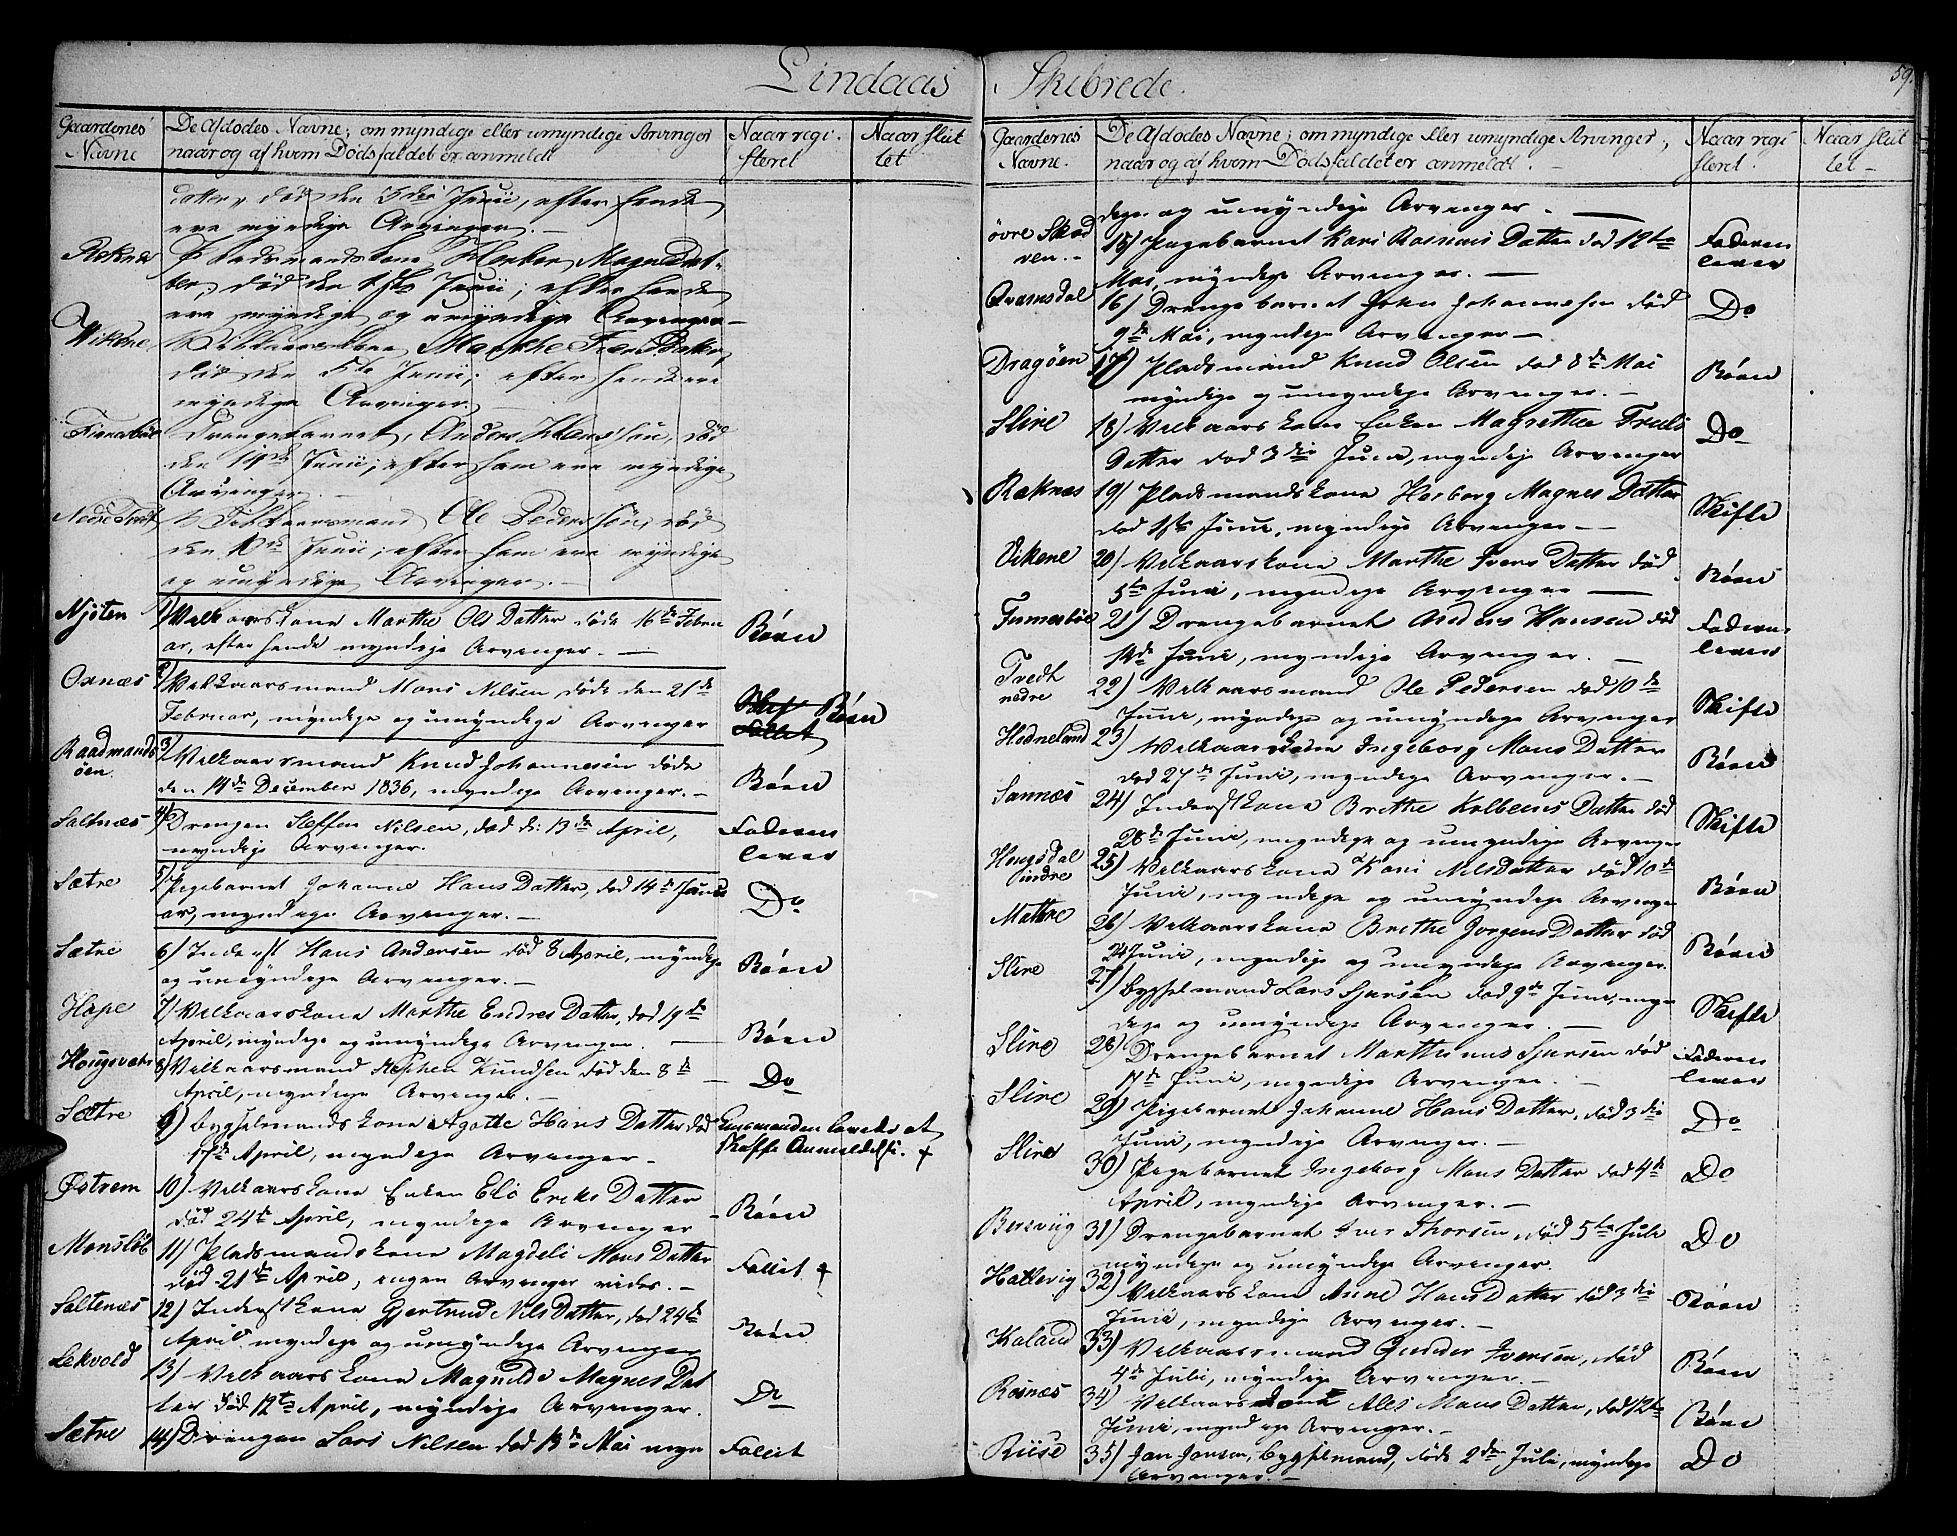 Lindaas Skibrede.
59.
Gaardenes Navne
De Afdødes Navne; om myndige eller umyndige Arvinger
naar og af hvem Dødsfaldet er anmeldt
Naar regi-
steret
Naar slut
tet
datter, død den 3die Junii, efter hende
ere myndige Arvinger. —
Reknes
Pladsmandskone Herbor Magne Dat-
ter, død den 1ste Junii; efter hende
ere myndige og umyndige Arvinger —
Vikene
Vilkaarskone Marthe Ivers Datter,
død den 5te Junii; efter hende ere
myndige Arvinger. —
Drengebarnet, Anders Hanssøn, død
den 14de Junii; efter ham ere myndige
Arvinger. —
Nedre Tvedt
Vilkaarsmand Ole Pederssøn, død
den 10de Junii; efter ham ere myndige
og umyndige Arvinger. —
Njøten
1) Velkaarskone Marthe Ols Datter døde 16de Febru
ar, efter hende myndige Arvenger. —
Røen
Oxnæs
2) Velkaarsmand Mons Nilsen døde den 21de
Februar, myndige og umyndige Arvenger
Røen
Fallit
Raadmands
øen
3) Velkaarsmand Knud Johannesen døde
den 14de December 1836, myndige Arvenger. —
Røen
Saltnæs
4) Drengen Steffen Nilsen, død d: 13de April,
myndige Arvenger.
Faderen
lever
Sætre
5) Pigebarnet Johanne Hans Datter, død 14de Janu
ar, myndige Arvenger. —
Do
Sætre
6) Inderst Hans Andersen død 8 April, myndige
og umyndige Arvenger. —
Røen
Hope
7) Velkaarskone Marthe Endres Datter, død 19de
April, myndige og umyndige Arvenger. —
Røen
Hougsvatn
8) Velkaarsmand Stephen Knudsen død den 8de
April, myndige Arvenger. —
Do
Sætre
9) Bygselmandskone Agatte Hans Datter død
17de April, myndige Arvenger —
Enkemanden lovede at
skaffe Anmeldelse. +
Østrem
10) Velkaarskone Enken Elo Eriks Datter
død 24de April, myndige Arvenger
Røen
Monsløb
11) Pladsmandskone Magdeli Mons Datter
død 21de April, ingen Arvenger vides. —
Fallit +
Saltenæs
12) Inderstkone Gjertrud Nils Datter, død 24de
April myndige og umyndige Arvenger
Røen
Lekvold
13) Velkaarskone Magnilde Magnes Dat
ter død 12te April, myndige Arvenger.
Do
Sætre
14) Drengen Lars Nilsen død 13de Mai myn
Fallit
Gaardenes
Navne.
De Afdødes Navne; om myndige eller umyndige Arvinger,
naar og af hvem Dødsfaldet er anmeldt. —
Naar regi
steret.
Naar slut
tet —
dige og umyndige Arvenger. —
øvre Skod
ven. —
15) Pigebarnet Kari Rasmus Datter død 12te
Mai, myndige Arvenger. —
Faderen
lever
Qvamsdal
16) Drengebarnet John Johannesen død
9de Mai, myndige Arvenger —
Do
Dragøen
17) Pladsmand Knud Olsen død 8de Mai
myndige og umyndige Arvenger. —
Røen
Slire
18) Velkaarskone Enken Magrethe Truls
Datter død 3die Juni, myndige Arvenger
Do
Reknæs
19) Pladsmandskone Herborg Magnes Datter
død 1ste Juni, myndige Arvenger —
Skifte
Vikene
20) Velkaarskone Marthe Ivers Datter død
5te Juni, myndige Arvenger —
Røen
21) Drengebarnet Anders Hansen død
14de Juni, myndige Arvenger. —
Faderen
lever
Tvedt
nedre
22) Velkaarsmand Ole Pedersen død 10de
Juni, myndige og umyndige Arvenger
Skifte
Hodneland
23) Velkaarskone Ingeborg Mons Datter
død 27de Juni, myndige Arvenger. —
Røen
Sannæs
24) Inderstkone Brithe Kolbeens Datter død
28de Juni, myndige og umyndige Arvenger
Skifte
Hougsdal
indre
25) Velkaarskone Kari Nils Datter død 10de
Juni, myndige og umyndige Arvenger
Røen
Mattre
26) Velkaarskone Brithe Jørgens Datter død
24 Juni, myndige og umyndige Arvenger.
Røen
Slire
27) Bygselmand Lars Sjursen død 9de Juni, myn
dige og umyndige Arvenger. —
Skifte
Slire
28) Drengebarnet Marthinus Sjursen død
17de Juni, myndige Arvenger. —
Faderen
lever
Slire
29) Pigebarnet Johanne Hans Datter, død 3die
Juni, myndige Arvenger. —
Do
Slire
30) Pigebarnet Ingeborg Mons Datter død 4de
April, myndige Arvenger. —
Do
31) Drengebarnet Iver Thorsen, død 5te Juli
myndige og umyndige Arvenger.
Do
Hattevig
32) Velkaarskone Anne Hans Datter død 3die
Juni, myndige Arvenger. —
Røen
Kaland
33) Velkaarsmand Gunder Iversen, død
4de Juli, myndige Arvenger. —
Røen
Rosnæs
34) Velkaarskone Ales Mons Datter, død 12te
Juni, myndige Arvenger. —
Røen
Riise
35) Jan Jansen, Bygselmand, døde 2den Juli, myndige
Arvenger. —
Do